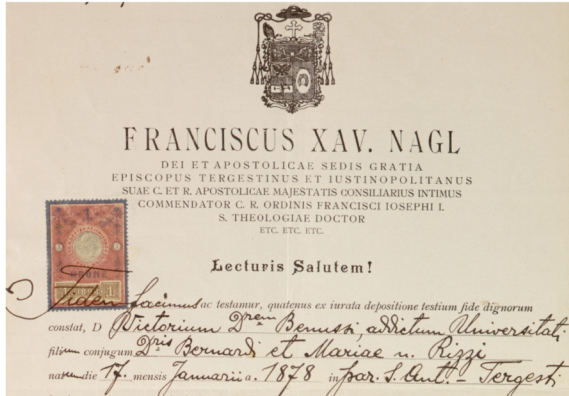 FRANCISCUS XAV. NAGL
DEI ET APOSTOLICAE SEDIS GRATIA
EPISCOPUS TERGESTINUS ET IUSTINOPOLITANUS
SUAE C. ET R. APOSTOLICAE MAJESTATIS CONSILIARIUS INTIMUS
COMMENDATOR C. R. ORDINIS FRANCISCI IOSEPHI I.
S. THEOLOGIAE DOCTOR
ETC. ETC. ETC.
Lecturis Salutem!
KRONE
1
Fidem facimus ac testamur, quatenus ex iurata depositione testium fide dignorum
constat, D Victorium Drem Benussi, addictum Universitati
filium conjugum Dris Bernardi et Mariae n. Rizzi
natum die 17. mensis Januarii a. 1878 in par. S. Ant. - Tergesti